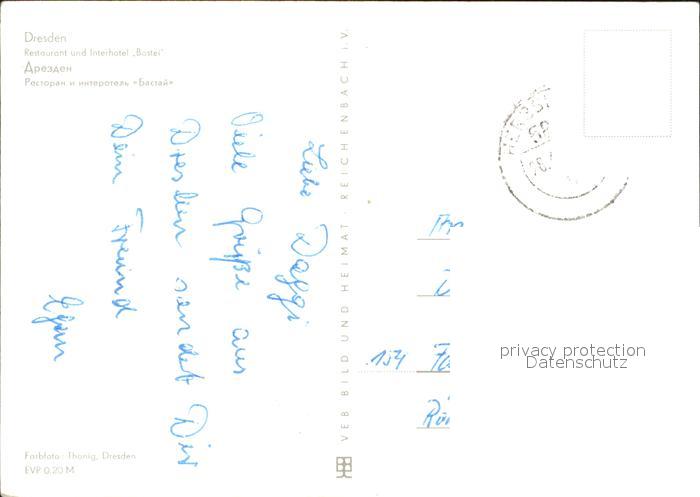 Dresden
Restaurant und Interhotel „Bastei"
Дрезден
Ресторан и интеротель «Бастай»
Liebe Daggi
Viele Grüße aus
Dresden sendet Dir
Dein Freund
Egon
VEB BILD UND HEIMAT · REICHENBACH i. V.
154
privacy protection
Datenschutz
Farbfoto: Thonig, Dresden
EVP 0,20 M